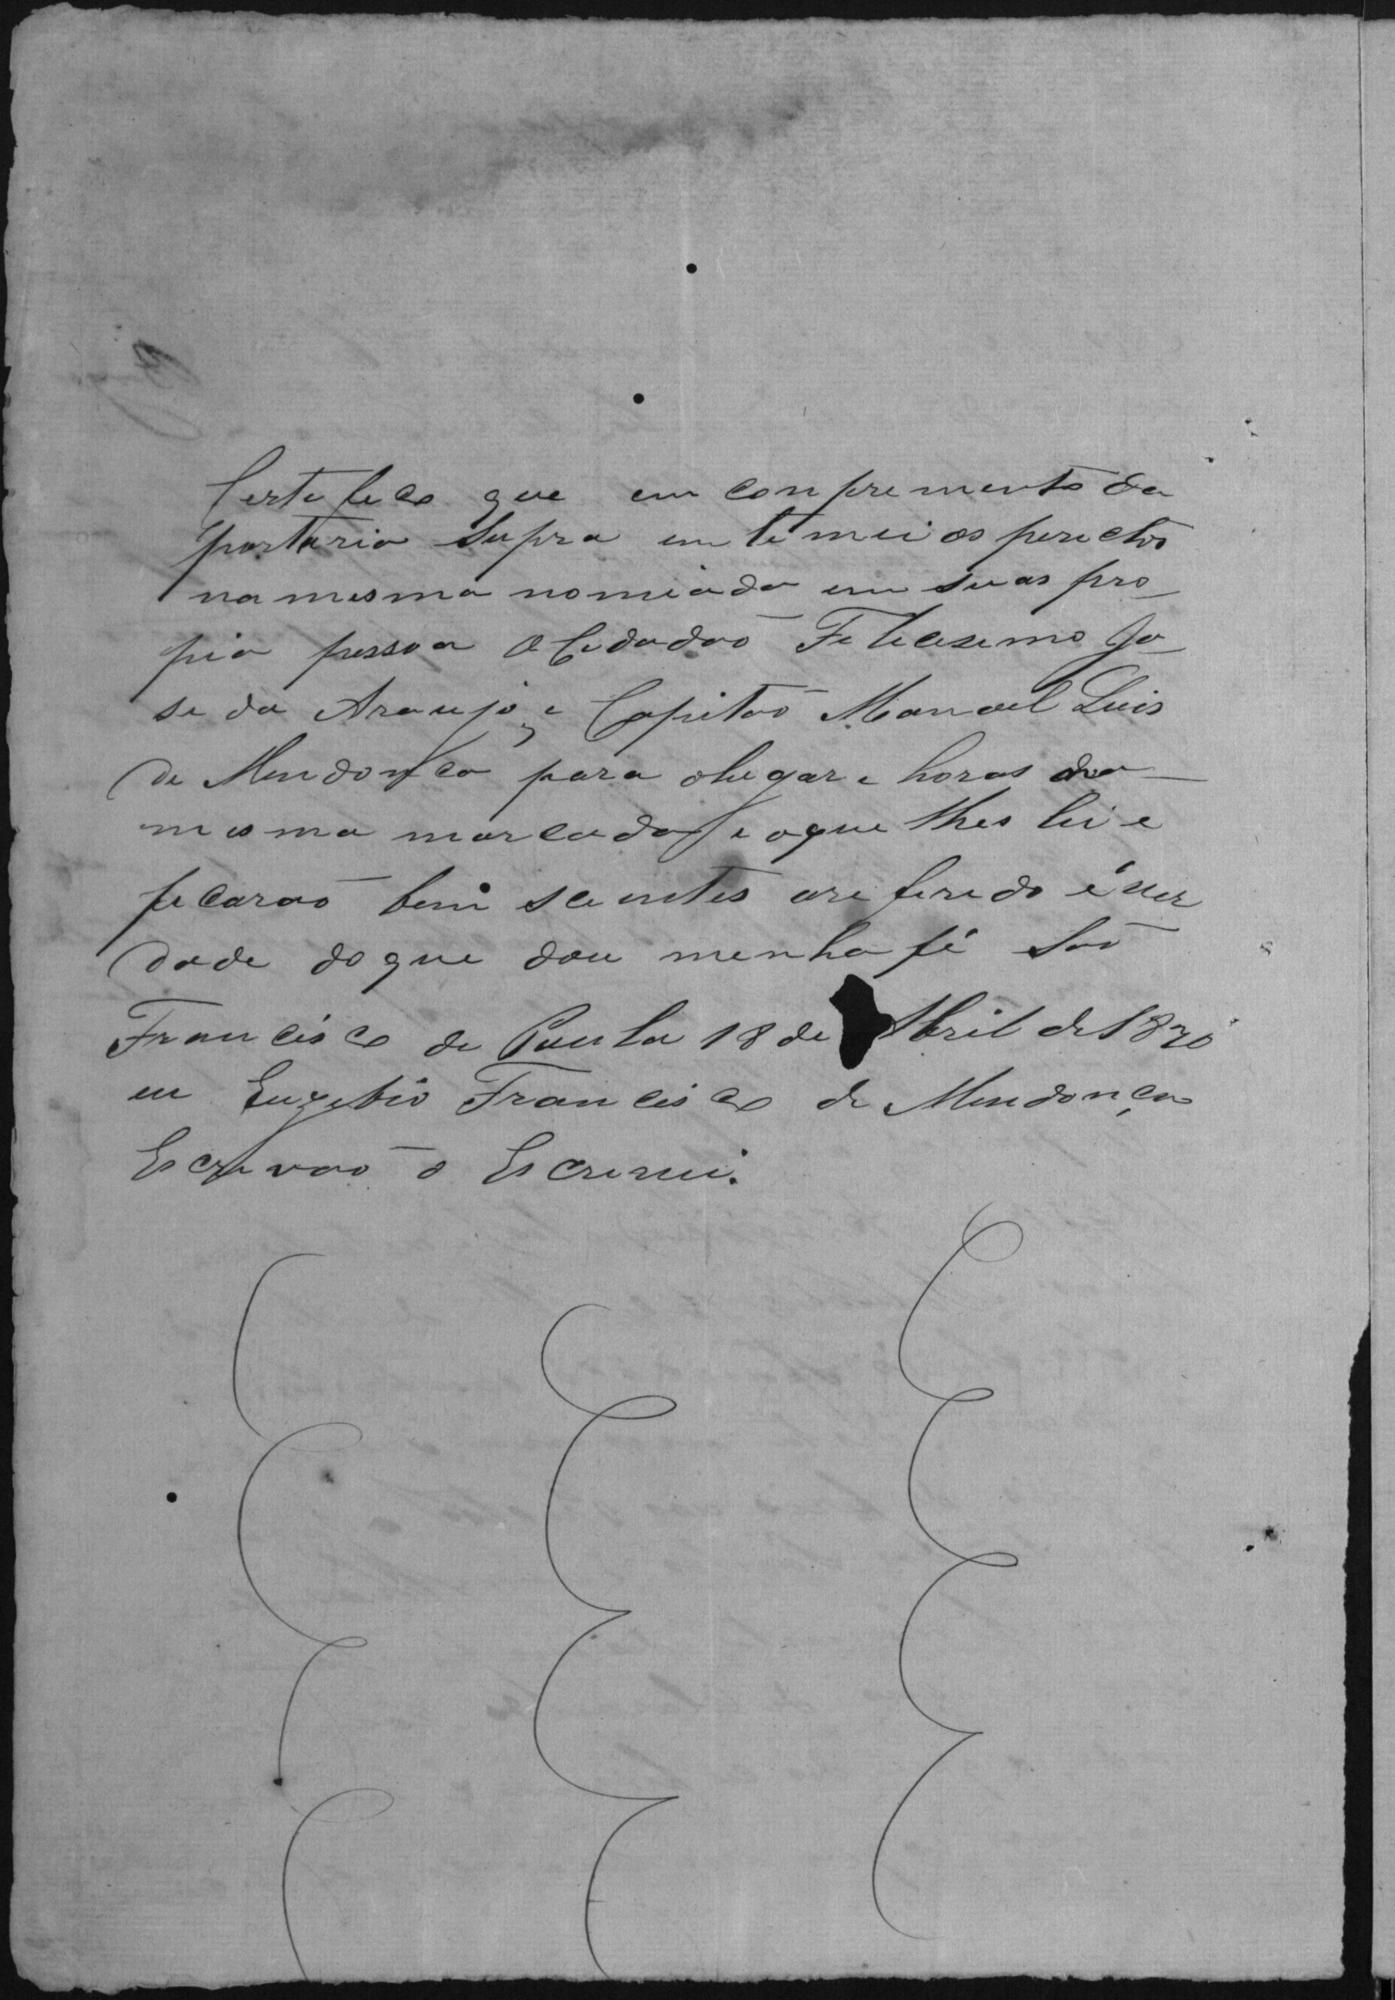 Certefeco que em conpremento da
portaria Supra emtemei os perectos
na mesma nomiada em suas pro
pia pessoa o Cidadaõ Felicesemo Jo
se da Araujo, e Capitaõ Manoel Luis
de Mendonca para olugar e horas da
mesma marcada e oque lhes li e
ficaraõ bem scientes oreferedo é ver
dade doque dou menha fé Saõ
Francisco de Paula 18 de Abril de 1870
eu Euzebio Francisco de Mendonça
Escrevaõ o Escrevi.